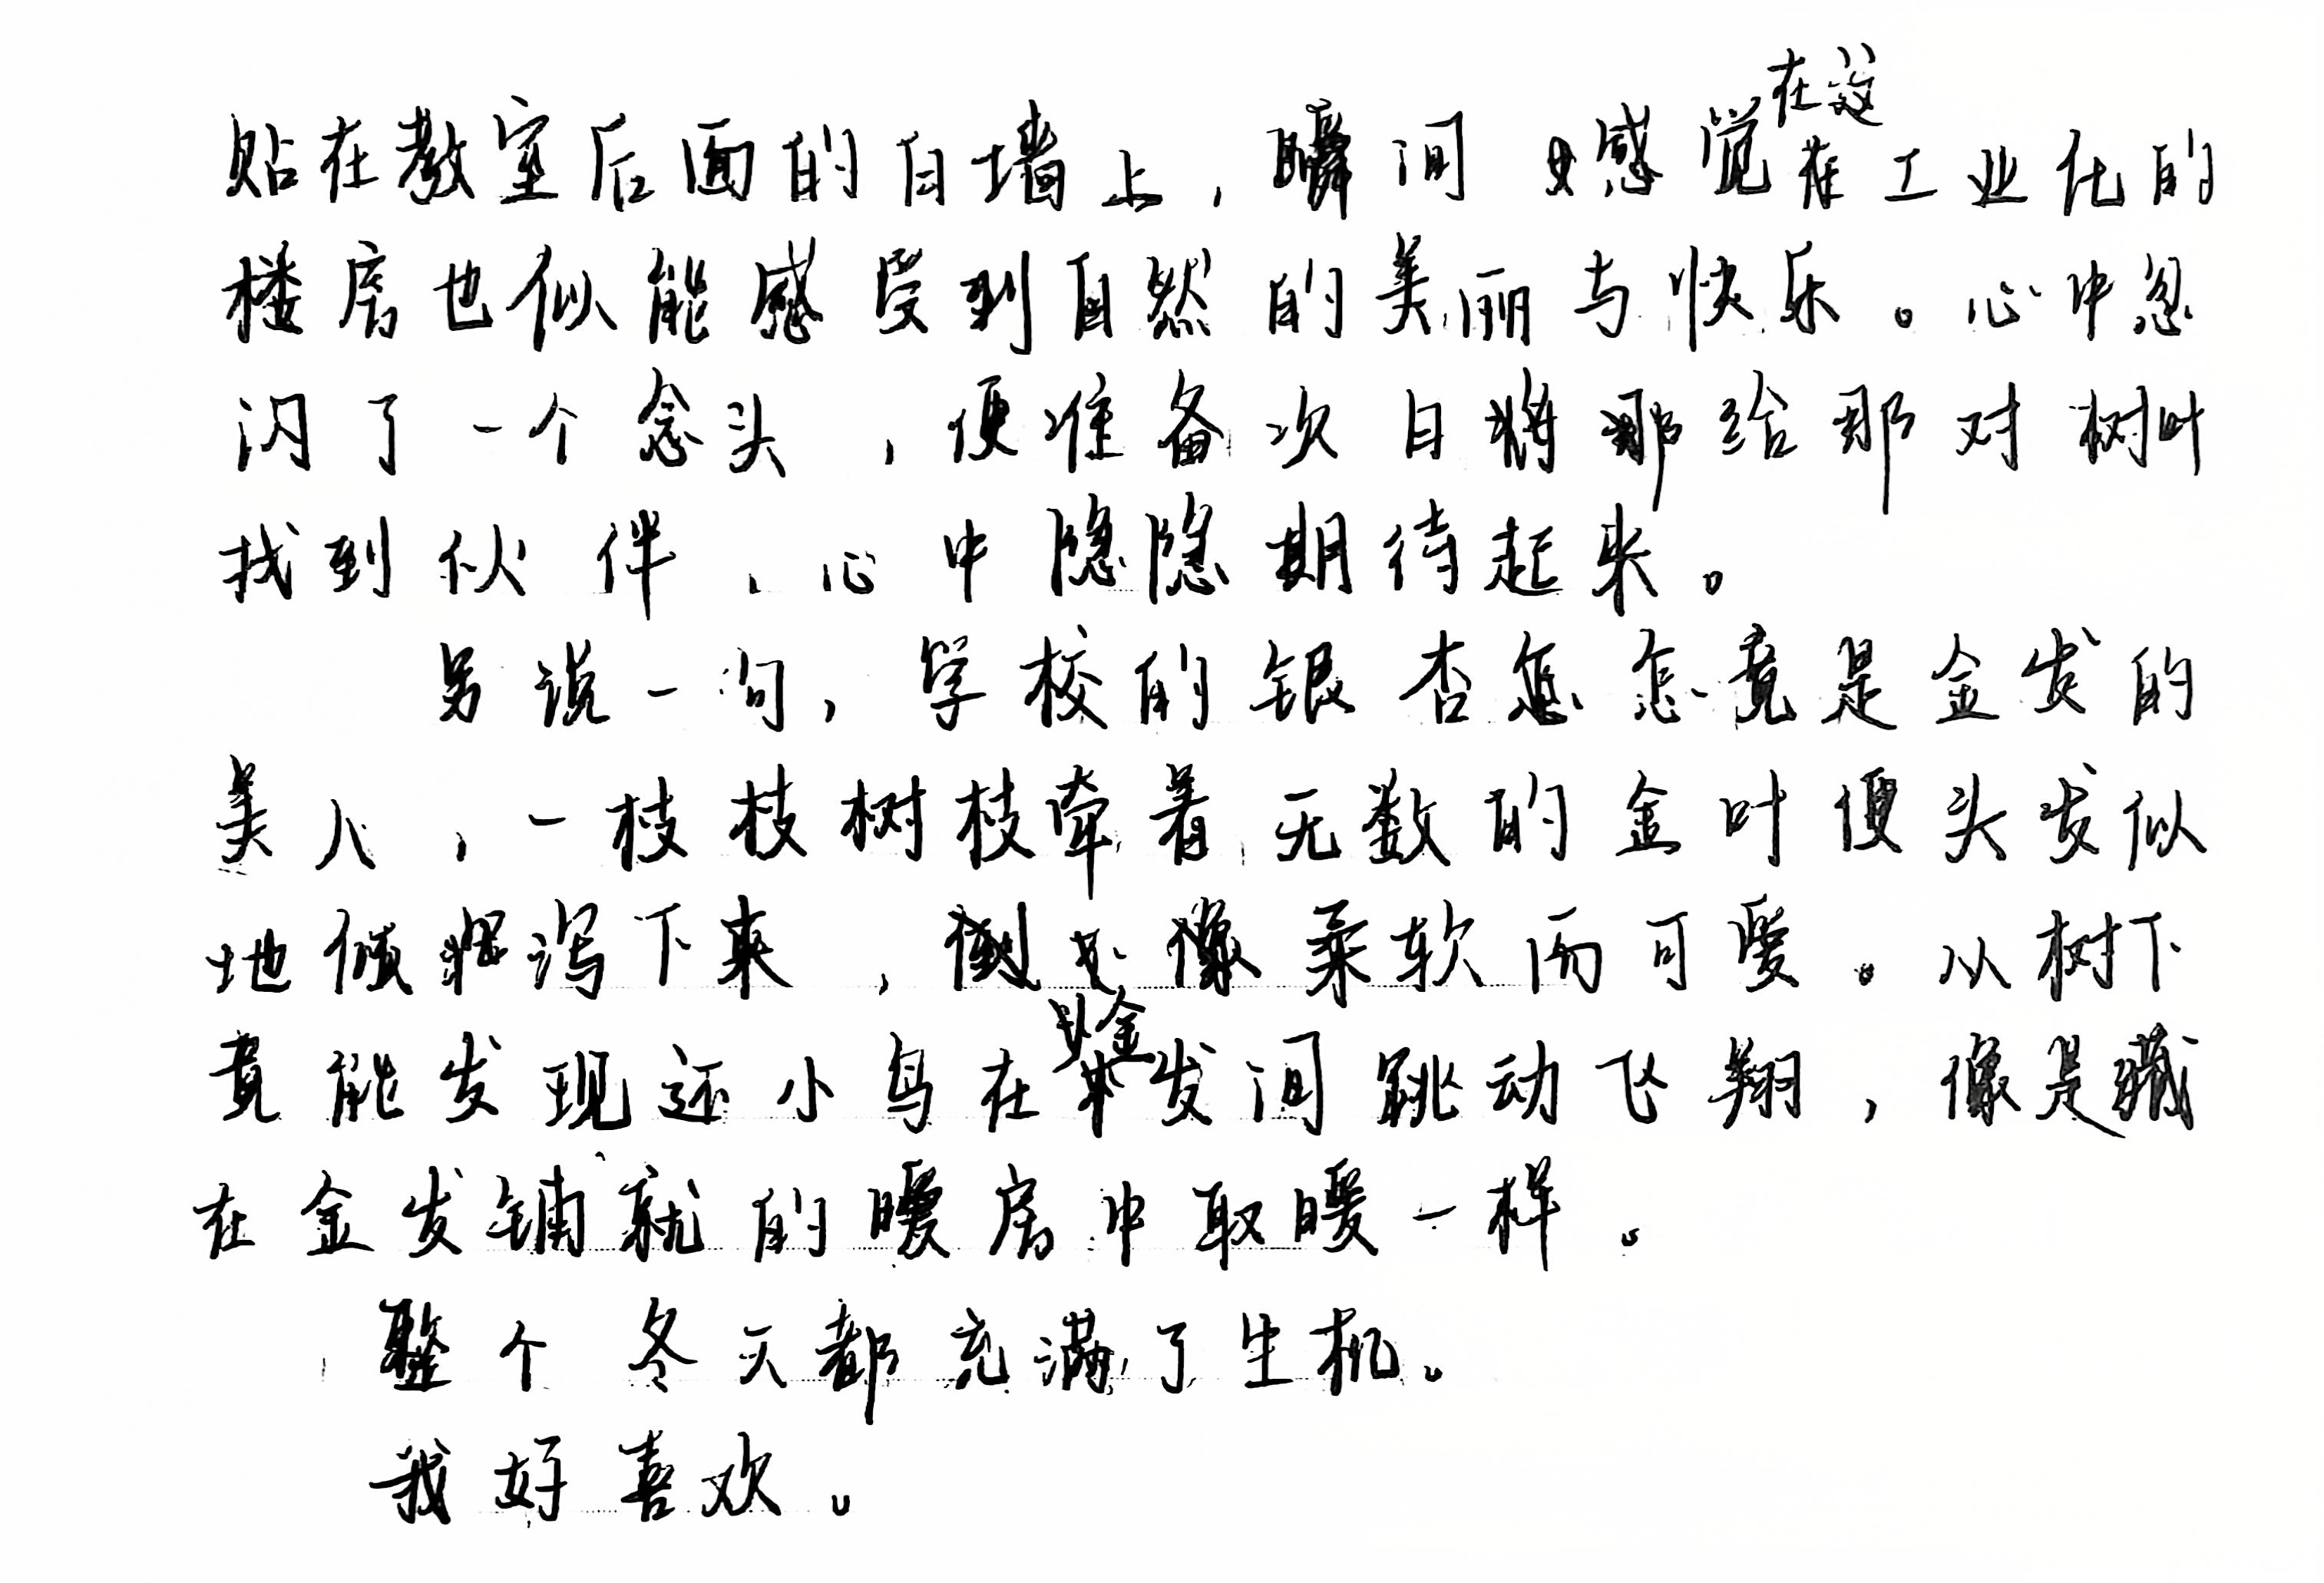 贴在教室后面的白墙上，瞬间感觉在这工业化的
楼房也似能感受到自然的美丽与快乐。心中忽
闪了一个念头，便准备次日将那给那对树叶
找到伙伴，心中隐隐期待起来。
另说一句，学校的银杏怎怎竟是金发的
美人，一枝枝树枝牵着无数的金叶便头发似
地倾泻下来，倒像柔软而可爱。从树下
竟能发现还小鸟在金发间跳动飞翔，像是藏
在金发铺就的暖房中取暖一样。
整个冬天都充满了生机。
我好喜欢。